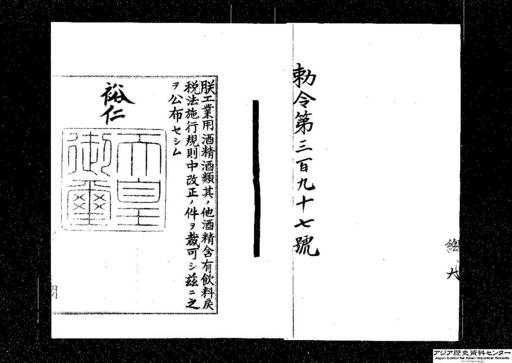 勅令第三百九十七號
朕工業用酒精酒類其ノ他酒精含有飲料戻
税法施行規則中改正ノ件ヲ裁可シ茲ニ之
ヲ公布セシム
裕仁
天皇
御璽
アジア歴史資料センター
Japan Center for Asian Historical Records